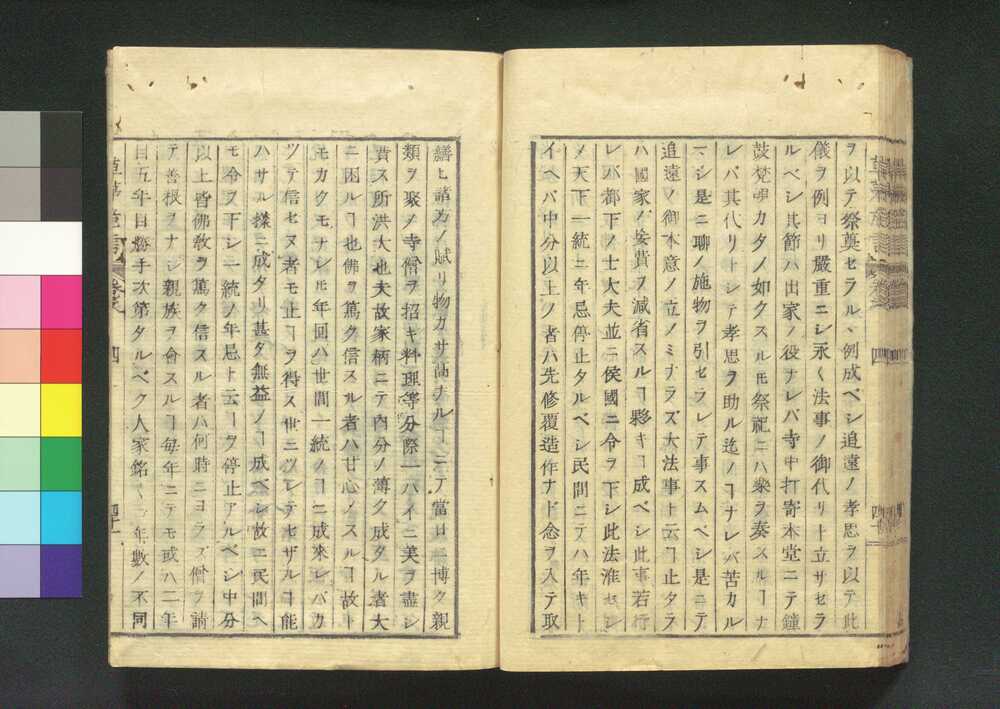 ヲ以テ祭奠セラルヽ例成ベシ追遠ノ孝思ヲ以テ此
儀ヲ例ヨリ嚴重ニシ永ク法事ノ御代リト立サセラ
ルベシ其節ハ出家ノ役ナレバ寺中打寄本堂ニテ鐘
鼓梵唄カタノ如クスル𪜈祭祀ニハ樂ヲ奏スルヿナ
レバ其代リトシテ孝思ヲ助ル迄ノヿナレバ苦カル
マシ是ニ聊ノ施物ヲ引セラレテ事スムベシ是ニテ
追遠ノ御本意ノ立ノミナラズ大法事ト云ヿ止タラ
ハ國家ノ妄費ヲ減省スルヿ夥キヿ成ベシ此事若行
レバ都下ノ士大夫並ニ侯國ニ令ヲ下シ此法准セシ
メ天下一統ニ年忌停止タルベシ民間ニテハ年キト
イヘバ中分以上ノ者ハ先修覆造作ナド念ヲ入テ取
繕ヒ諸方ノ賦リ物カサ高ナルヿニテ當日ニ博ク親
類ヲ聚メ寺僧ヲ招キ料理等分際一ハイニ美ヲ盡シ
費ス所洪大也夫故家柄ニテ内分ノ薄ク成タル者大
ニ困ルヿ也佛ヲ篤ク信スル者ハ甘心ノスルヿ故ト
モカクモナシ𪜈年回ハ世間一統ノヿニ成來レバカ
ツテ信セヌ者モ止ヿヲ得ス世ニツレテセザルヿ能
ハサル樣ニ成タリ甚タ無益ノヿ成ベシ故ニ民間ヘ
モ令ヲ下シ一統ノ年忌ト云ヿヲ停止アルベシ中分
以上皆佛教ヲ篤ク信スル者ハ何時ニヨラズ僧ヲ請
テ善根ヲナシ親族ヲ會スルヿ毎年ニテモ或ハ二年
目五年目勝手次第タルベク人家銘〱年數ノ不同
草茅危言
四